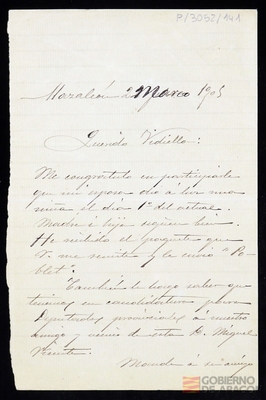 P/3052/141
Mazaleón 2 Marzo 1905
Querido Vidiella:
Me congratulo en participarle
que mi esposa dió á luz una
niña el dia 1º del actual.
Madre é hija siguen bien
He recibido el paquete que
V. me remite y le envio
También le hago saber que
tenemos en candidatura para
Diputados provinciales á nuestro
amigo y vecino de esta D. Miguel
Mande á su amigo
GOBIERNO
DE ARAGON